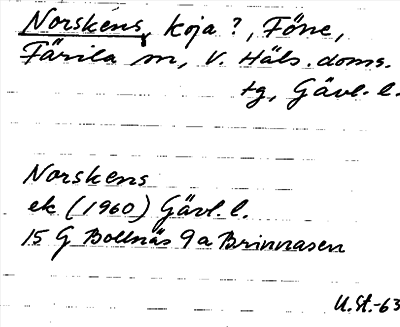 Norskens, Koja?, Föne,
Färila sn, V. Häls. doms.
tg, Gävl. l.
Norskens
ek (1960) Gävl. l.
15 G Bollnäs 9a Brinnasen
U.St.-63